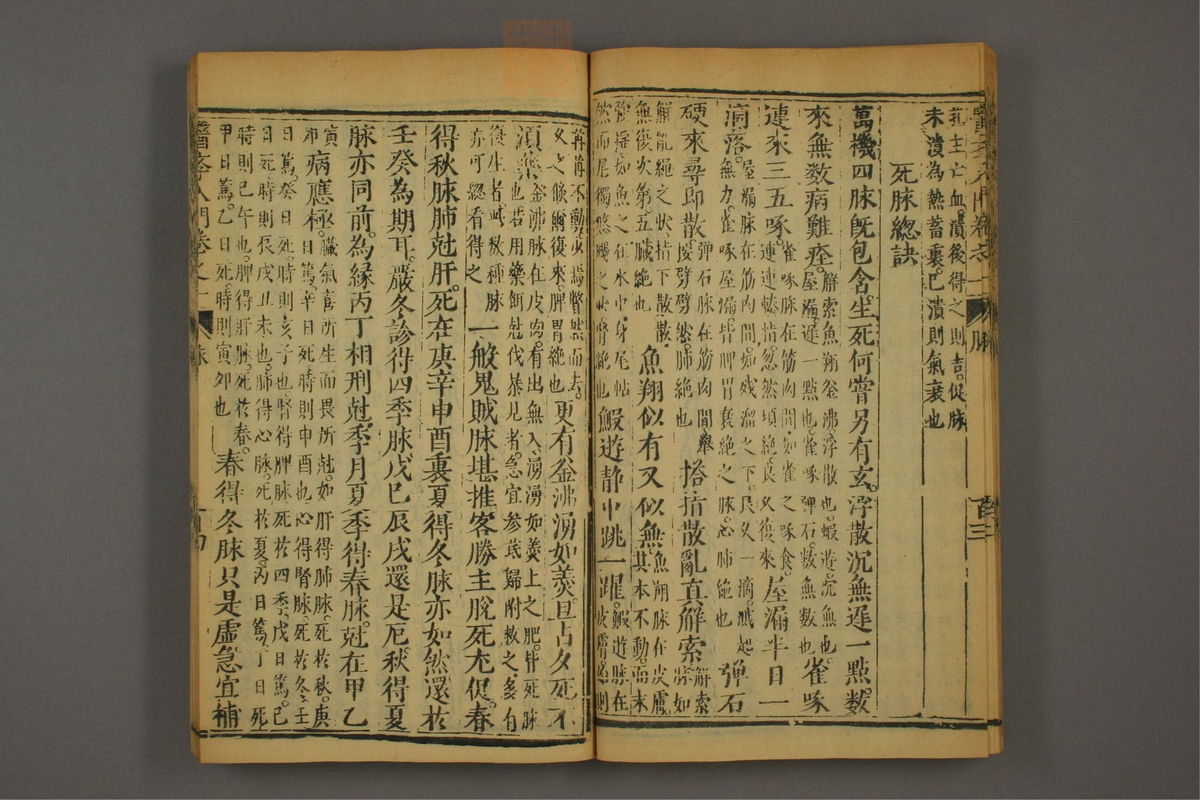 孔主亡血。潰後得之則吉。促脉
未潰為熱蓄裏。已潰則氣衰也
死脉總訣
萬機四脉既包含。生死何嘗另有玄。浮散沉無遲一點數
來無數病難痊。解索魚翔釜沸浮散也。蝦遊沉無也。屋漏遲一點也。雀啄彈石數無數也。雀啄
連來三五啄。雀啄脉在筋肉間。如雀之啄食。連連輳指。忽然頓絶。良久復來屋漏半日一
滴落。屋漏脉在筋肉間。如殘溜之下。良久一滴。濺起無力。雀啄屋漏皆脾胃衰絶之脉。心肺絶也彈石
硬來尋即散。彈石脉在筋肉間。舉劈劈然。肺絶也搭指散亂真解索。解索脉如
解亂繩之狀。指下散散。無復次第。五臟絶也魚翔似有又似無。魚翔脉在皮膚其本不動。而末
強搖。如魚之在水中。身尾帖然而尾獨悠颺之狀。腎絶也蝦遊静中跳一躍。蝦遊脉在皮膚。始則
冉冉不動。少焉瞥然而去。久之倏爾復來。脾胃絶也更有釜沸湧如羹。旦占夕死不
須藥。釜沸脉在皮肉。有出無入。湧湧如羹上之肥。皆死脉也。若用藥餌尅伐暴見者。急宜參芪歸附救之。多有
復生者。此數種脉亦可總看得之一般鬼賊脉堪推。客勝主脫死尤促。春
得秋脉肺尅肝。死在庚辛申酉裏。夏得冬脉亦如然。還於
壬癸為期耳。嚴冬診得四季脉。戊巳辰戌還是厄。秋得夏
脉亦同前。為緣丙丁相刑尅。季月夏季得春脉。尅在甲乙
寅卯病應極。臟氣喜所生而畏所尅。如肝得肺脉。死於秋。庚日篤。辛日死。時則申酉也。心得腎脉。死於冬。壬
日篤。癸日死。時則亥子也。腎得脾脉。死於四季。戊日篤。己日死。時則辰戌丑未也。肺得心脉。死於夏。丙日篤。丁日死
時則巳午也。脾得肝脉。死於春。甲日篤。乙日死。時則寅卯也春得冬脉只是虛。急宜補